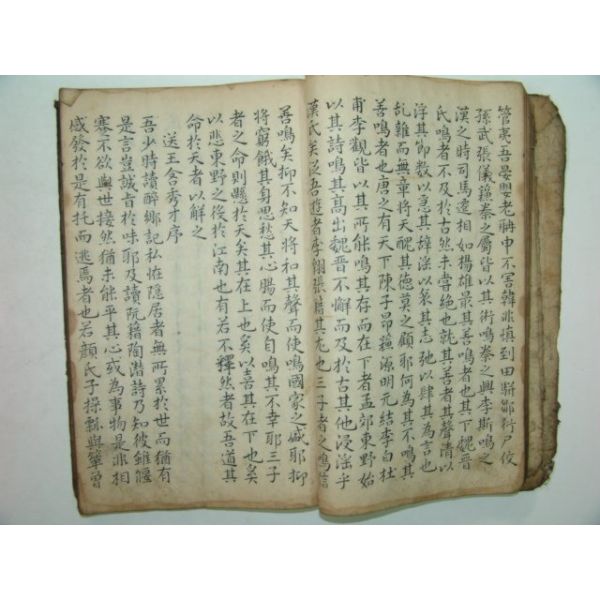 管夷吾晏嬰老聃申不害韓非愼到田騈鄒衍尸佼
孫武張儀蘇秦之屬皆以其術鳴秦之興李斯鳴之
漢之時司馬遷相如揚雄最其善鳴者也其下魏晉
氏鳴者不及於古然未嘗絶也就其善者其聲淸以
浮其節數以急其辭淫以哀其志弛以肆其為言也
亂雜而無章將天醜其德莫之顧耶何為其不鳴其
善鳴者也唐之有天下陳子昻蘇源明元結李白杜
甫李觀皆以其所能鳴其存而在下者孟郊東野始
以其詩鳴其髙出魏晉不懈而及於古其他浸淫乎
漢氏矣從吾遊者李翶張籍其尤也三子者之鳴信
善鳴矣抑不知天將和其聲而使鳴國家之盛耶抑
將窮餓其身思愁其心腸而使自鳴其不幸耶三子
者之命則懸於天矣其在上也奚以喜其在下也奚
以悲東野之役於江南也有若不釋然者故吾道其
命於天者以解之
送王含秀才序
吾少時讀醉鄉記私恠隱居者無所累於世而猶有
是言豈誠旨於味耶及讀阮籍陶潛詩乃知彼雖偃
蹇不欲與世接然猶未能平其心或為事物是非相
感發於是有托而逃焉者也若顔氏子操瓢與簞曾